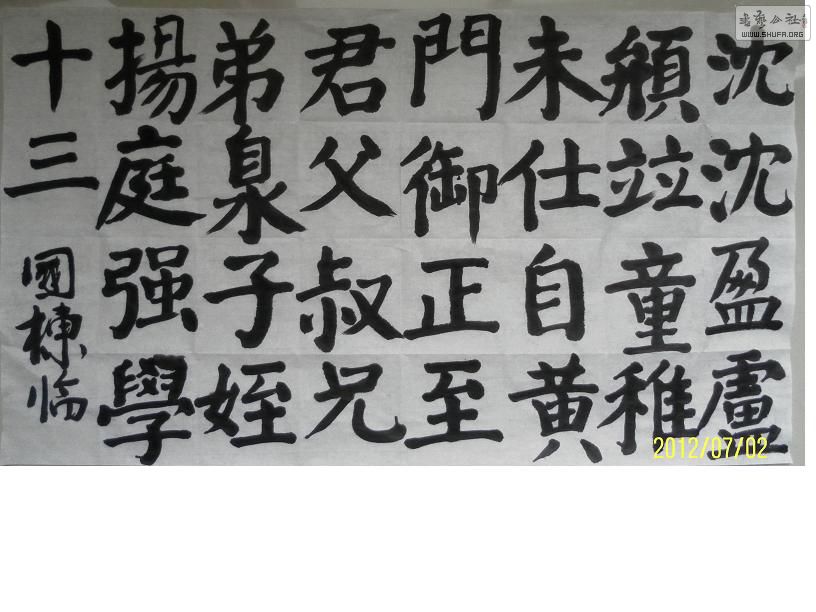 沈沈盈盧
頫竝童稚
未仕自黄
門御正至
君父叔兄
弟泉子姪
揚庭强學
十三
國棟临
書藝公社
WWW.SHUFA.ORG
2012/07/02